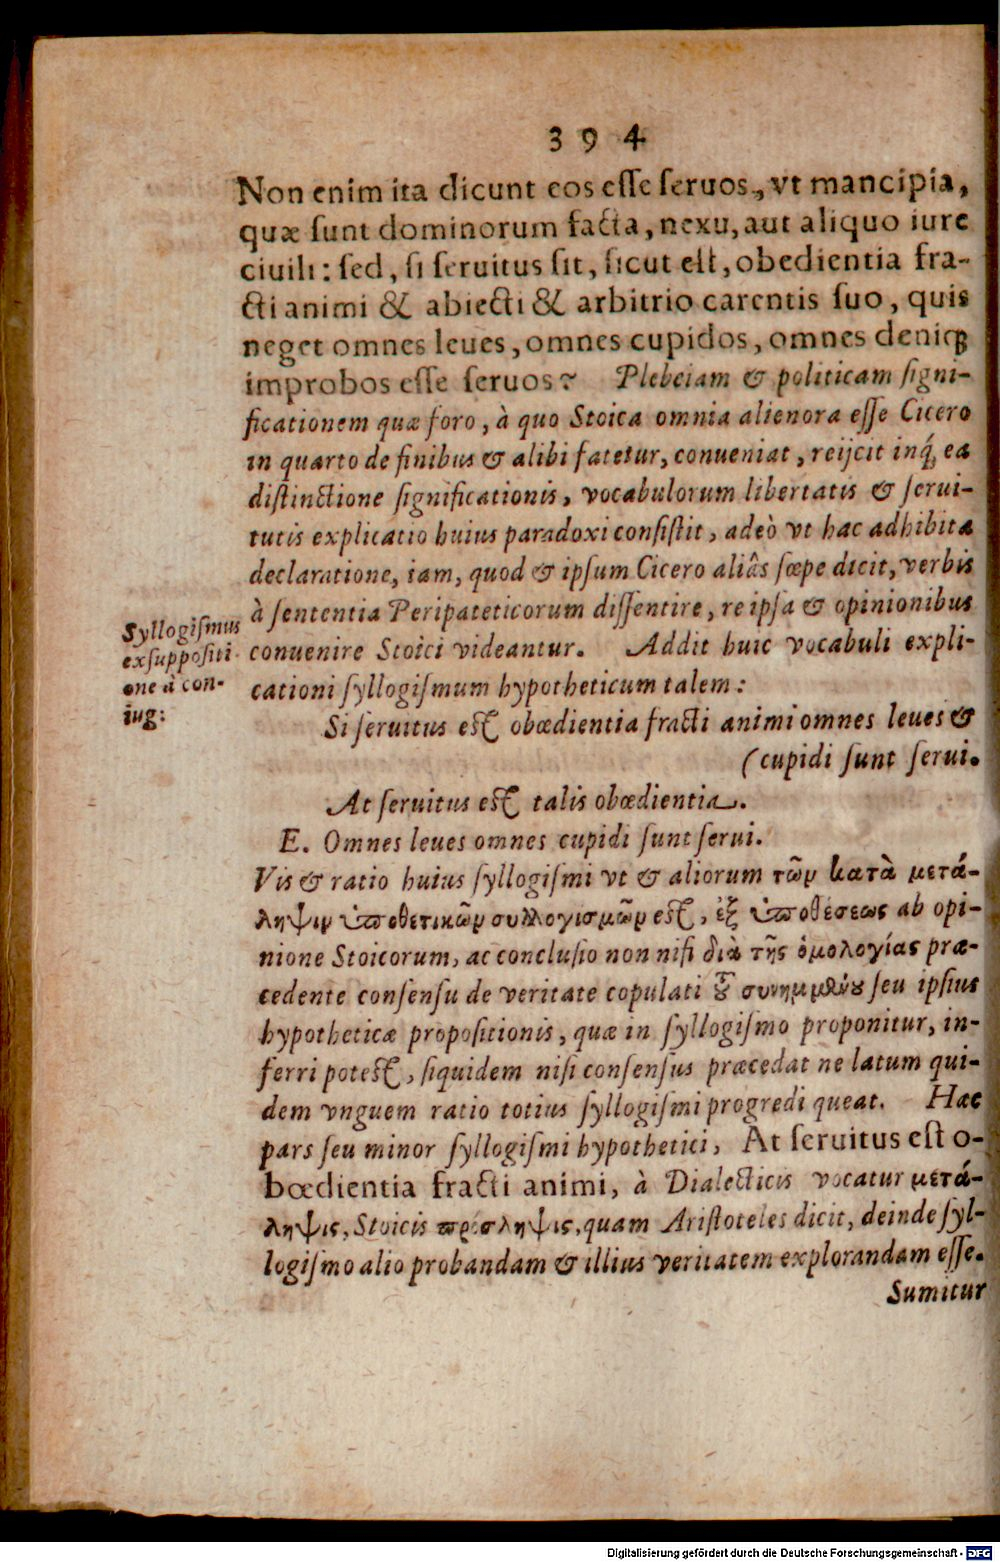 394
Non enim ita dicunt eos esse seruos, vt mancipia,
quæ sunt dominorum facta, nexu, aut aliquo iure
ciuili: sed, si seruitus sit, sicut est, obedientia fra-
cti animi & abiecti & arbitrio carentis suo, quis
neget omnes leues, omnes cupidos, omnes deniqꝫ
improbos esse seruos? Plebeiam & politicam signi-
ficationem quæ foro, à quo Stoica omnia alienora esse Cicero
in quarto de finibus & alibi fatetur, conueniat, reijcit inq́ꝫ ea
distinctione significationis, vocabulorum libertatis & serui-
tutis explicatio huius paradoxi consistit, adeò vt hac adhibita
declaratione, iam, quod & ipsum Cicero aliâs sæpe dicit, verbis
à sententia Peripateticorum dissentire, re ipsa & opinionibus
conuenire Stoici videantur. Addit huic vocabuli expli-
cationi syllogismum hypotheticum talem:
Syllogismus
ex suppositi-
one à con-
iug:
Si seruitus est obœdientia fracti animi omnes leues &
(cupidi sunt serui.
At seruitus est talis obœdientia.
E. Omnes leues omnes cupidi sunt serui.
Vis & ratio huius syllogismi vt & aliorum τῶν κατὰ μετά-
ληψιν ὑποθετικῶν συλλογισμῶν est, ἐξ ὑποθέσεως ab opi-
nione Stoicorum, ac conclusio non nisi διὰ τῆς ὁμολογίας præ-
cedente consensu de veritate copulati ȣ͂ συνημμένȣ seu ipsius
hypotheticæ propositionis, quæ in syllogismo proponitur, in-
ferri potest, siquidem nisi consensus præcedat ne latum qui-
dem vnguem ratio totius syllogismi progredi queat. Hæc
pars seu minor syllogismi hypothetici, At seruitus est o-
bœdientia fracti animi, à Dialecticis vocatur μετά-
ληψις, Stoicis πρόσληψις, quam Aristoteles dicit, deinde syl-
logismo alio probandam & illius veritatem explorandam esse.
Sumitur
Digitalisierung gefördert durch die Deutsche Forschungsgemeinschaft - DFG